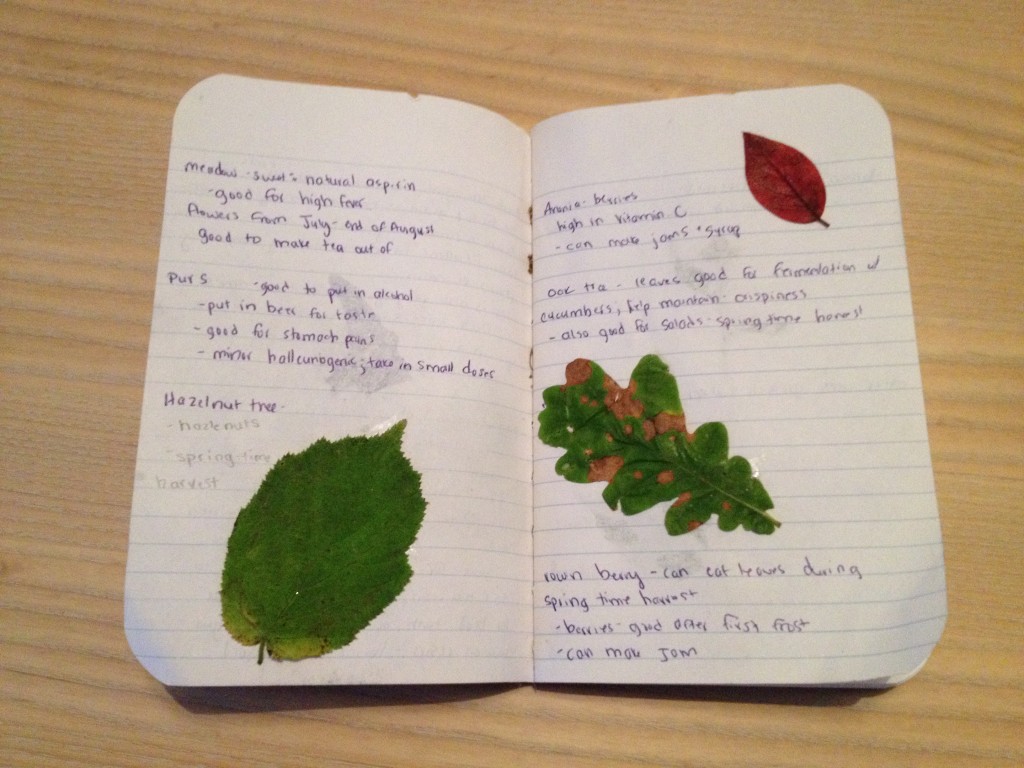 meadow-sweet= natural aspirin
-good for high fever
flowers from July-end of August
good to make tea out of
purs -good to put in alcohol
-put in beer for taste
-good for stomach pains
- minor hallcunogenic; take in small doses
Hazelnut tree-
- hazlenuts
-spring-time
harvest
Aronia-berries
high in vitamin C
- can make jams + syrup
oak tea - leaves good for fermentation w/
cucumbers; help maintain crispiness
- also good for salads-spring time harvest
rown berry - can eat leaves during
spring time harvest
-berries-good after first frost
-can make Jam